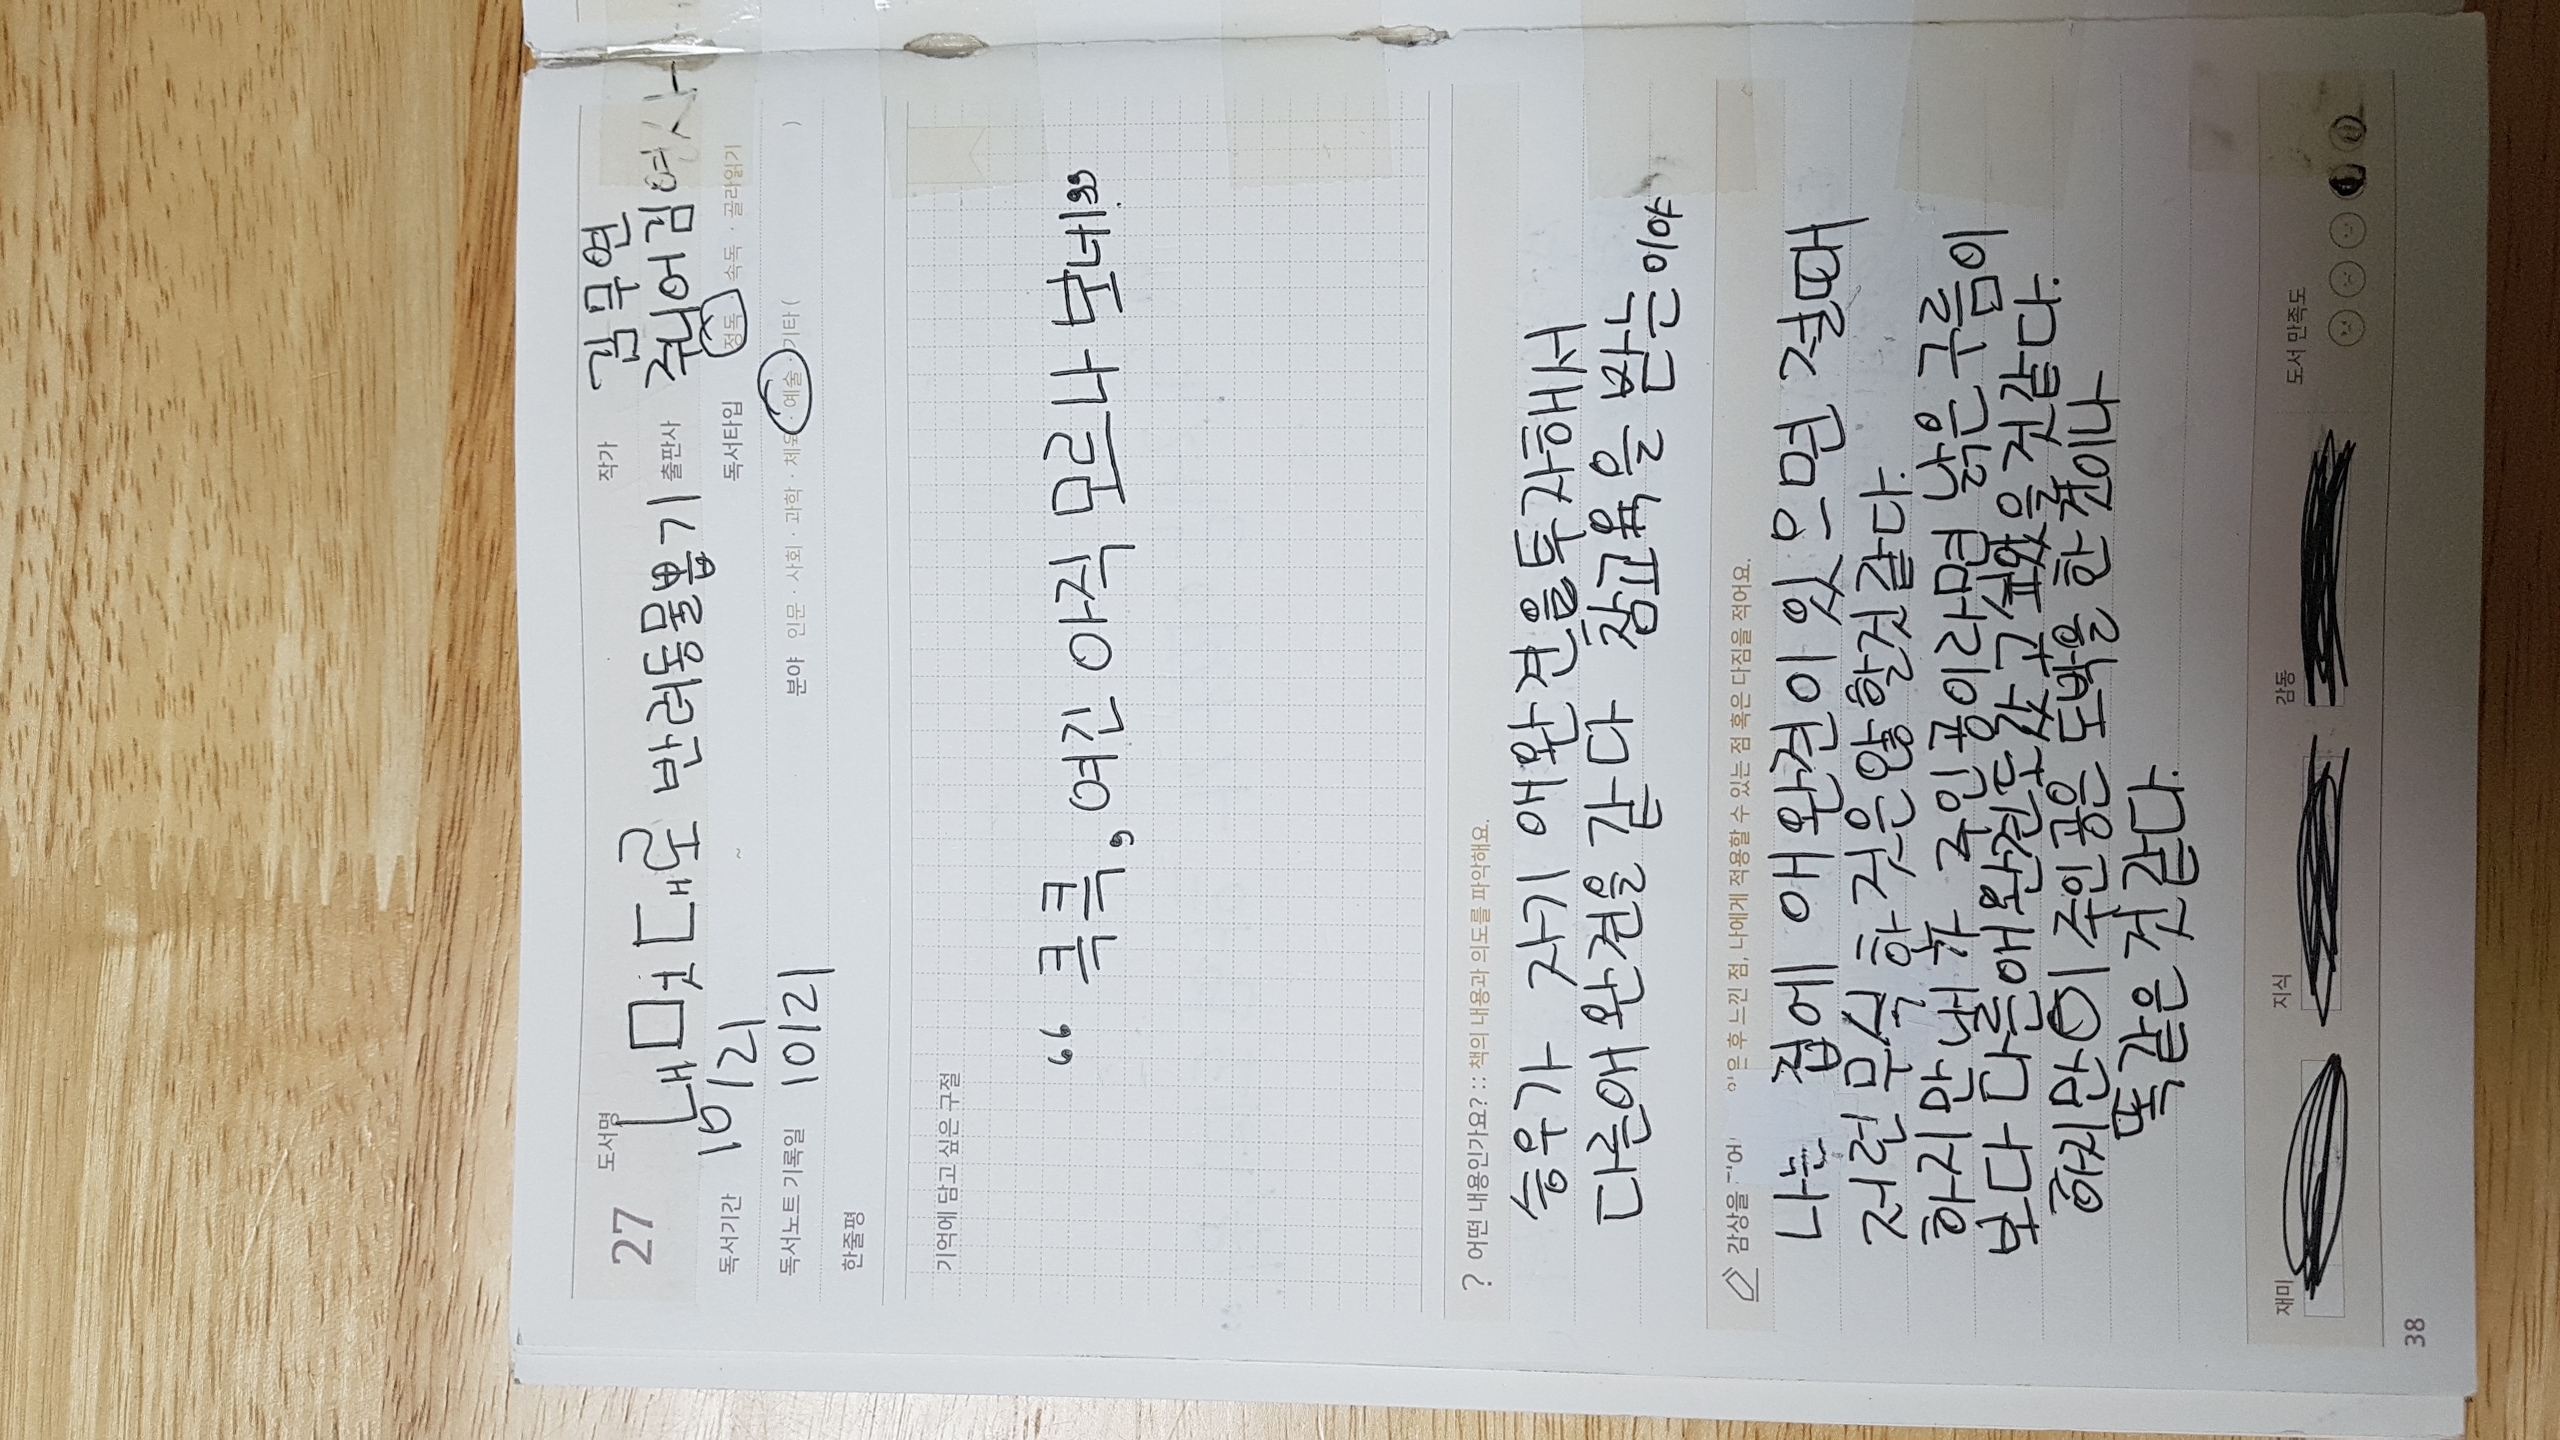 27 도서명 내멋대로 반려동물뽑기
작가 김무연
출판사 주니어김영사
독서기간 10/21 ~
독서타입 정독 · 속독 · 골라읽기
독서노트 기록일 10/21
분야 인문 · 사회 · 과학 · 체육 · 예술 · 기타 ( )
한줄평
기억에 담고 싶은 구절
“ 큭큭, 여긴 아직 모르나 보네!”
? 어떤 내용인가요? :: 책의 내용과 의도를 파악해요.
승우가 자기 애완견을투자해서
다른애완견을 같다 참교육을 받는이야
감상을 은 후 느낀 점, 나에게 적용할 수 있는 점 혹은 다짐을 적어요.
나는 집에 애완견이 있으면 절때
저런 무식 한 것은않할것같다.
하지만 내가 주인공이라면 낡은구름이
보다 다른애완견도갔고싶었을것같다.
하지만 이 주인공은 도박을 한 것이나
똑같은 것같다.
재미 지식 감동 도서 만족도
38